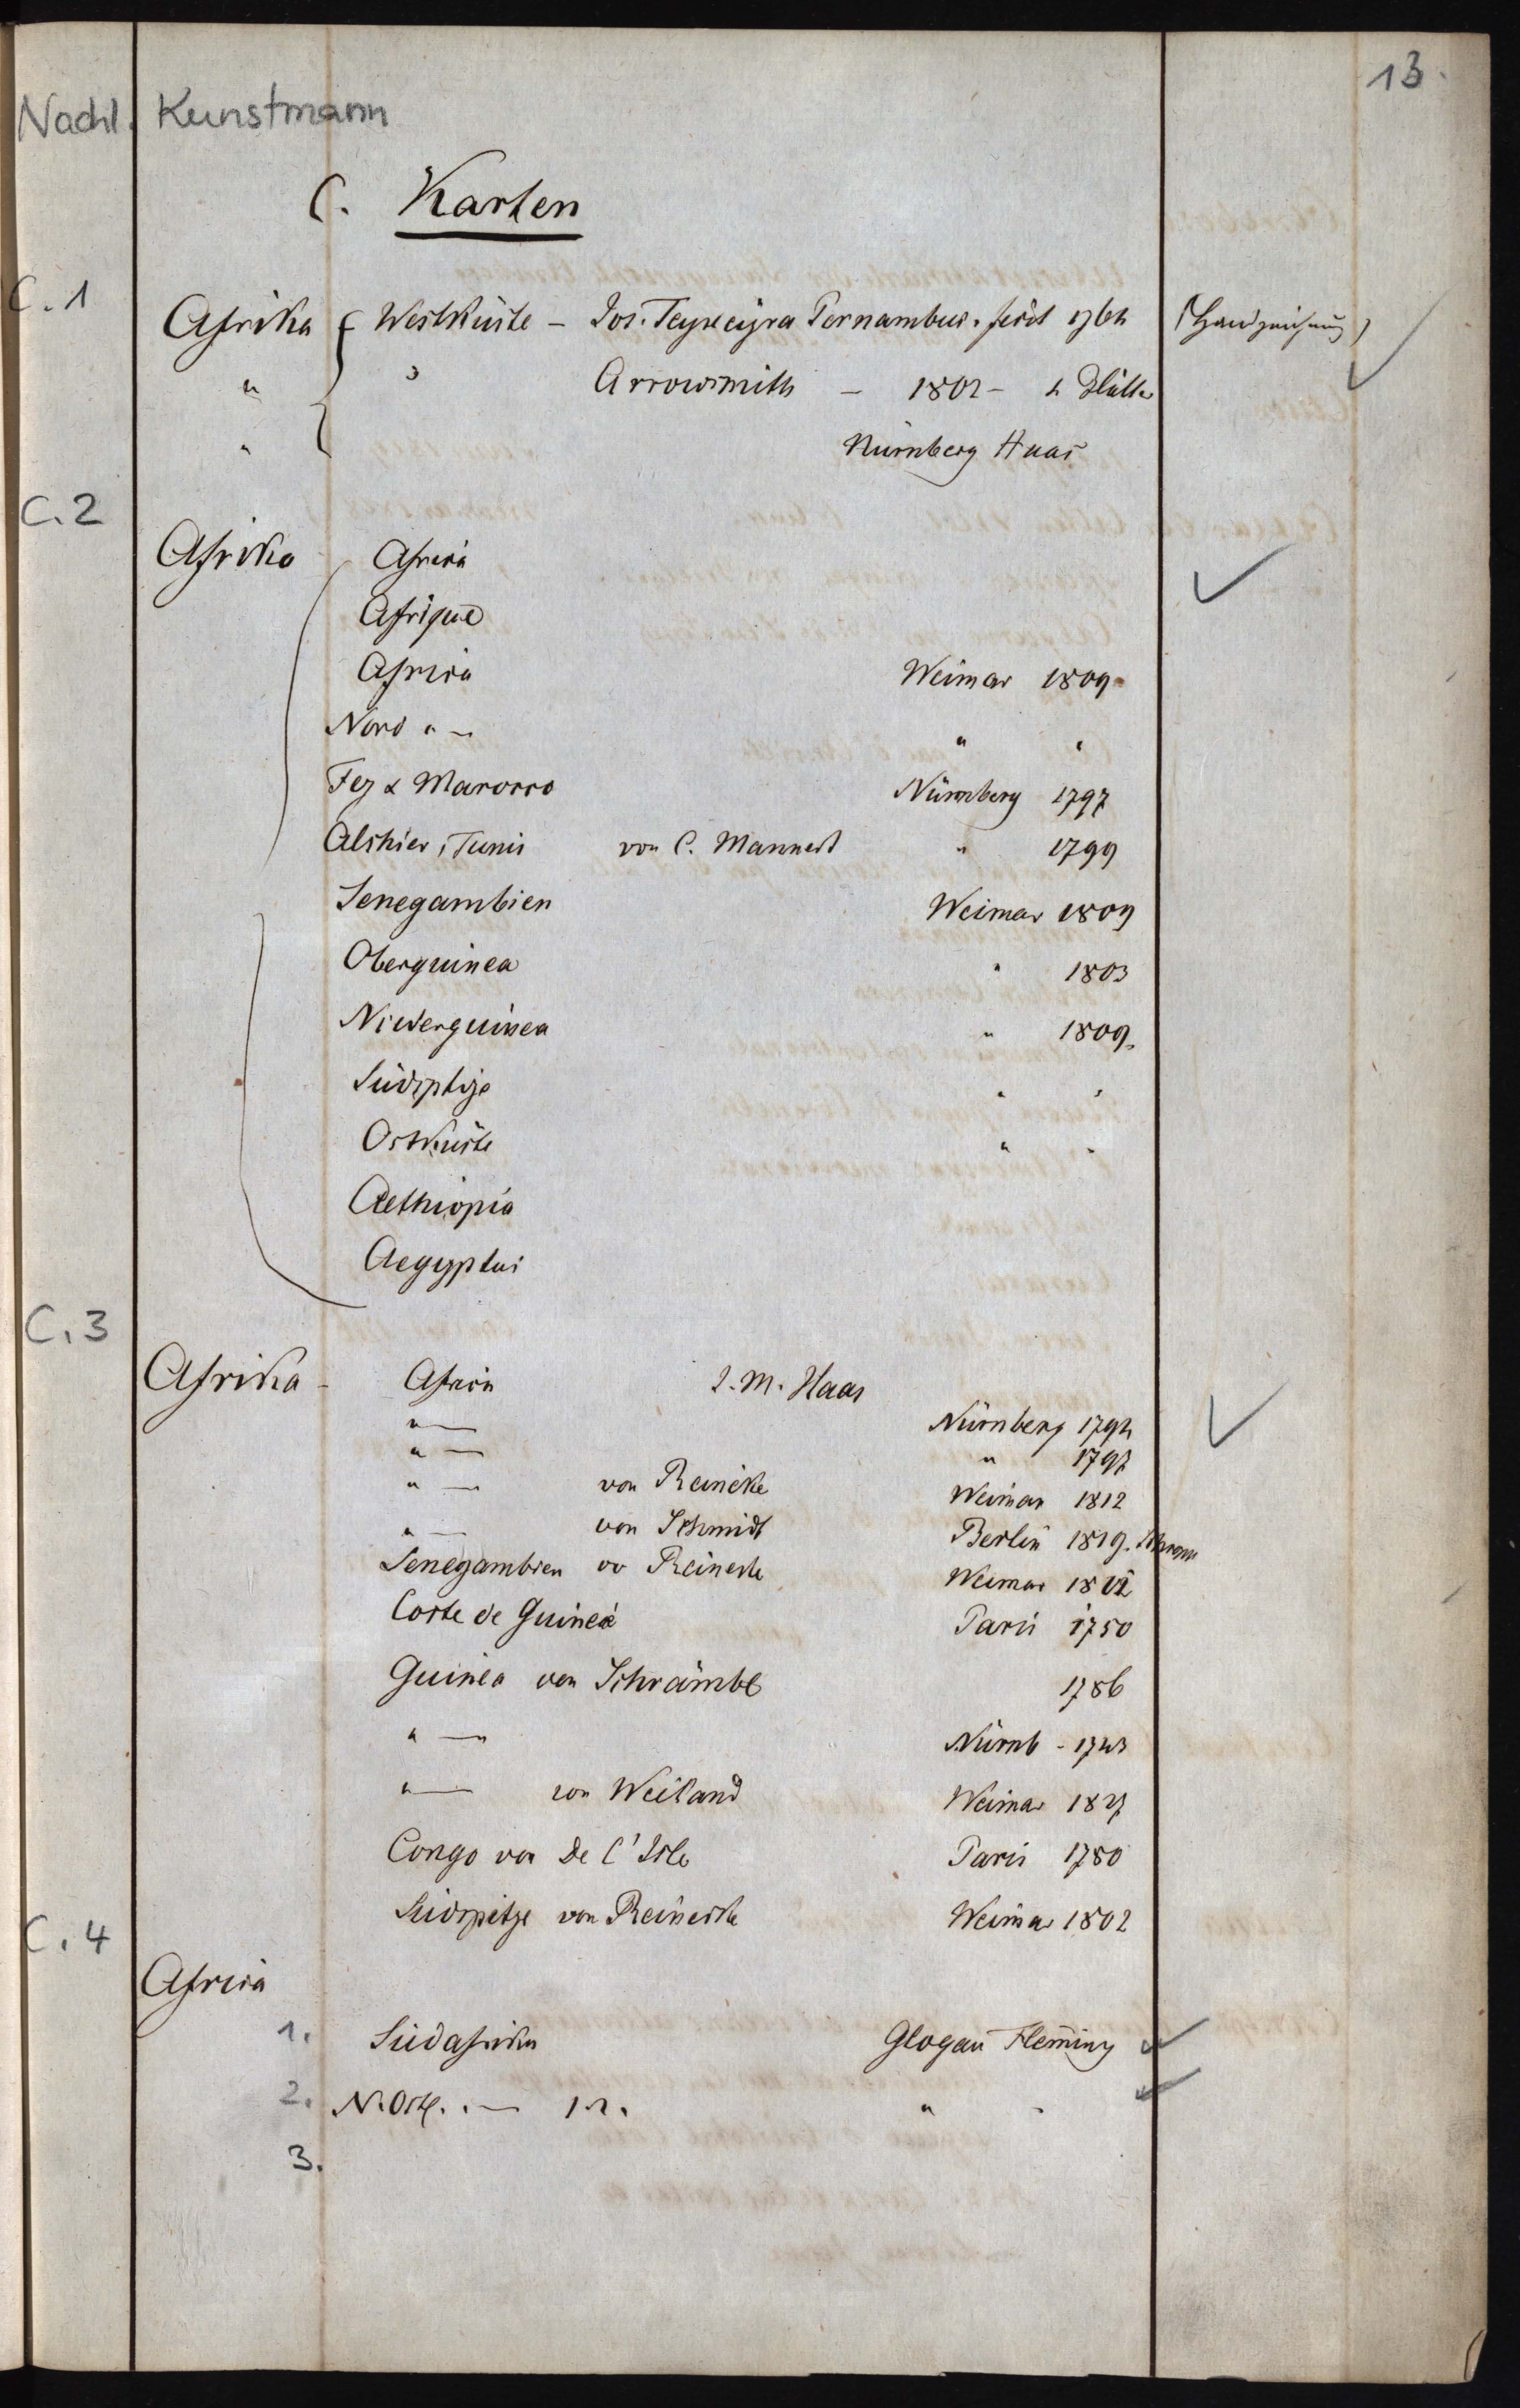 13.
Nachl. Kunstmann
C. Karten
C.1
Afrika { Westküste – Jos. Teyxeiyra Pernambuc. fecit 1764 (Handzeichnung)
" " Arrowsmith – 1802 – 4 Blätter
" Nürnberg Haas
C.2
Afrika Africa
Afrique
Africa Weimar 1809
Nord " – " "
Fez & Marocco Nürnberg 1797
Alchier, Tunis von C. Mannert " 1799
Senegambien Weimar 1809
Oberguinea " 1803
Niederguinea " 1809.
Südsptize " "
Ostküste " "
Aethiopia
Aegyptus
C.3
Afrika – Africa J. M. Haas
" — Nürnberg 1794
" — " 1797
" — von Reineke Weimar 1812
" — von Schmidt Berlin 1819. Schropp
Senegambien vo Reinecke Weimar 1812
Coste de Guinea Paris 1750
Guinea von Schrämbl 1786
" — Nürnb – 1743
" — von Weiland Weimar 1827
Congo von De l'Isle Paris 1780
Südspitze von Reinecke Weimar 1802
C.4
Africa
1. Südafrika Glogau Flem̄ing
2. N. Ostl. " — 1.2. " "
3.